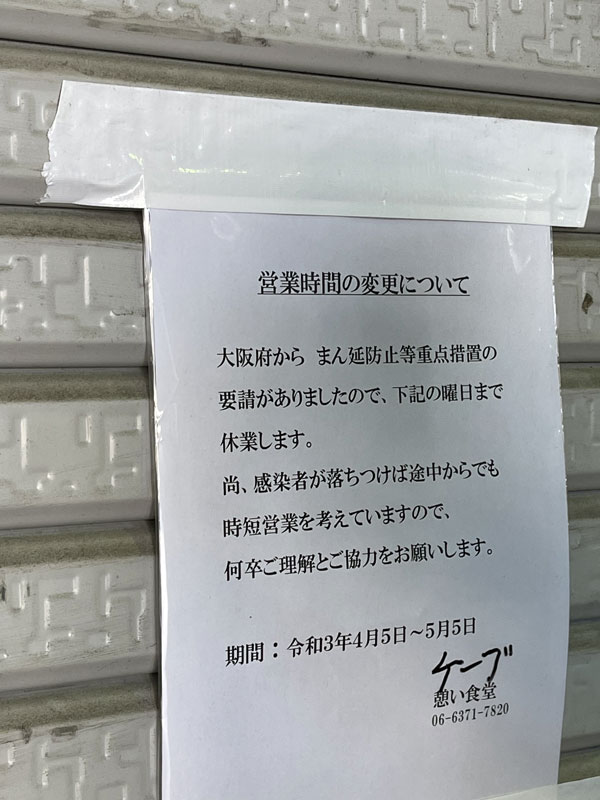 営業時間の変更について
大阪府から まん延防止等重点措置の
要請がありましたので、下記の曜日まで
休業します。
尚、感染者が落ちつけば途中からでも
時短営業を考えていますので、
何卒ご理解とご協力をお願いします。
期間：令和3年4月5日～5月5日
ケーブ
憩い食堂
06-6371-7820